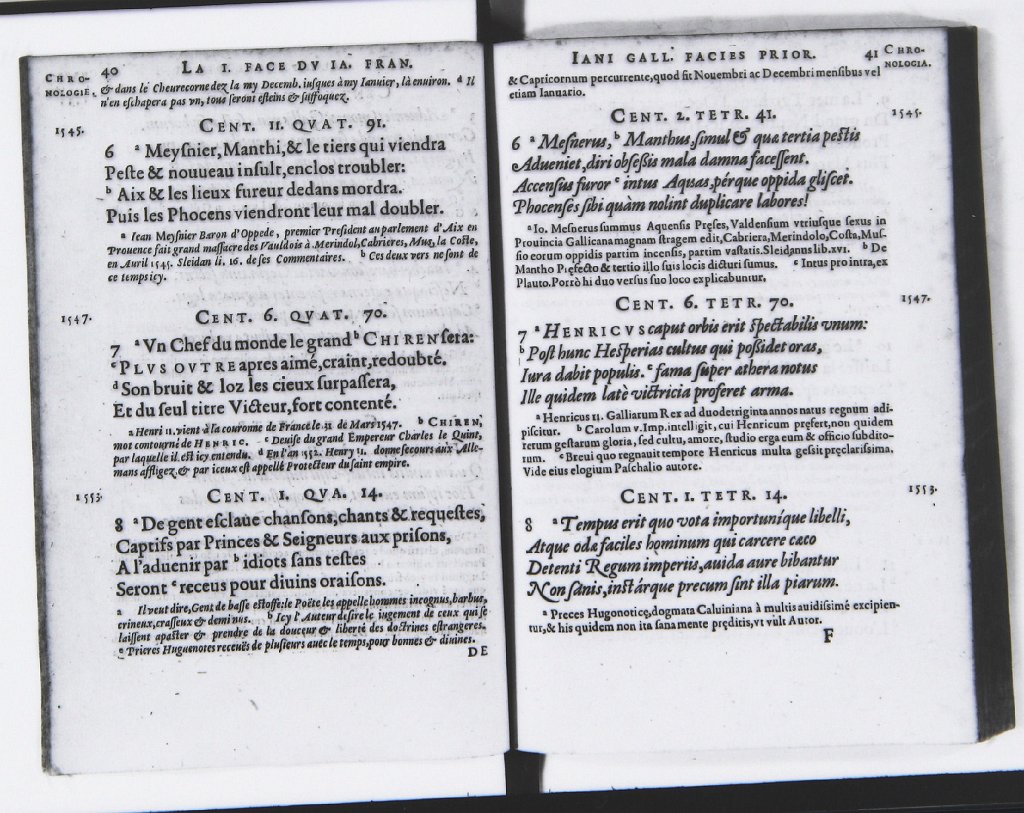 CHRO-
NOLOGIE.
40 LA I. FACE DV IA. FRAN.
& dans le Cheurecorne dez la my Decemb. iusques à my Ianuier, là enuiron. d Il
n'en eschapera pas vn, tous seront esteins & suffoquez.
CENT. II. QVAT. 91.
1545.
6 a Meysnier, Manthi, & le tiers qui viendra
Peste & nouueau insult, enclos troubler:
b Aix & les lieux fureur dedans mordra.
Puis les Phocens viendront leur mal doubler.
a Iean Meysnier Baron d'Oppede, premier President au parlement d'Aix en
Prouence fait grand massacre des Vauldois à Merindol, Cabrieres, Muz, la Coste,
en Auril 1545. Sleidan li. 16. de ses Commentaires. b Ces deux vers ne sont de
ce temps icy.
CENT. 6. QVAT. 70.
1547.
7 a Vn Chef du monde le grand b CHIREN sera:
c PLVS OVTRE apres aimé, craint, redoubté,
d Son bruit & loz les cieux surpassera,
Et du seul titre Victeur, fort contenté.
a Henri II. vient à la couronne de France le 31 de Mars 1547. b CHIREN,
mot contourné de HENRIC. c Deuise du grand Empereur Charles le Quint,
par laquelle il est icy entendu. d En l'an 1552. Henry II. donne secours aux Alle-
mans affligez, & par iceux est appellé Protecteur du saint empire.
CENT. I. QVA. 14.
1553.
8 a De gent esclaue chansons, chants & requestes,
Captifs par Princes & Seigneurs aux prisons,
A l'aduenir par b idiots sans testes
Seront c receus pour diuins oraisons.
a Il veut dire, Gent de basse estoffe: le Poëte les appelle hommes incognus, barbus,
crineux, crasseux & demi nus. b Icy l'Auteur desire le iugement de ceux qui se
laissent apaster & prendre de la douceur & liberté des doctrines estrangeres.
c Prieres Huguenotes receuës de plusieurs auec le temps, pour bonnes & diuines.
DE
IANI GALL. FACIES PRIOR. 41
CHRO-
NOLOGIA.
& Capricornum percurrente, quod fit Nouembri ac Decembri mensibus vel
etiam Ianuario.
CENT. 2. TETR. 41.
1545.
6 a Mesnerus, b Manthus, simul & quæ tertia pestis
Adueniet, diri obsessis mala damna facessent.
Accensus furor c intus Aquas, pérque oppida gliscet.
Phocenses sibi quàm nolint duplicare labores!
a Io. Mesnerus summus Aquensis Pręses, Valdensium vtriusque sexus in
Prouincia Gallicana magnam stragem edit, Cabriera, Merindolo, Costa, Mus-
sio eorum oppidis partim incensis, partim vastatis. Sleidanus lib. xvi. b De
Mantho Pręfecto & tertio illo suis locis dicturi sumus. c Intus pro intra, ex
Plauto. Porrò hi duo versus suo loco explicabuntur.
CENT. 6. TETR. 70.
1547.
7 a HENRICVS caput orbis erit spectabilis vnum:
b Post hunc Hesperias cultus qui possidet oras,
Iura dabit populis. c fama super æthera notus
Ille quidem latè victricia proferet arma.
a Henricus II. Galliarum Rex ad duodetriginta annos natus regnum adi-
piscitur. b Carolum v. Imp. intelligit, cui Henricum pręfert, non quidem
rerum gestarum gloria, sed cultu, amore, studio erga eum & officio subdito-
rum. c Breui quo regnauit tempore Henricus multa gessit pręclarissima.
Vide eius elogium Paschalio autore.
CENT. I. TETR. 14.
1553.
8 a Tempus erit quo vota importuníque libelli,
Atque odæ faciles hominum qui carcere cæco
Detenti Regum imperiis, auida aure bibantur
Non sanis, instárque precum sint illa piarum.
a Preces Hugonoticę, dogmata Caluiniana à multis auidissimé excipien-
tur, & his quidem non ita sana mente pręditis, vt vult Autor.
F